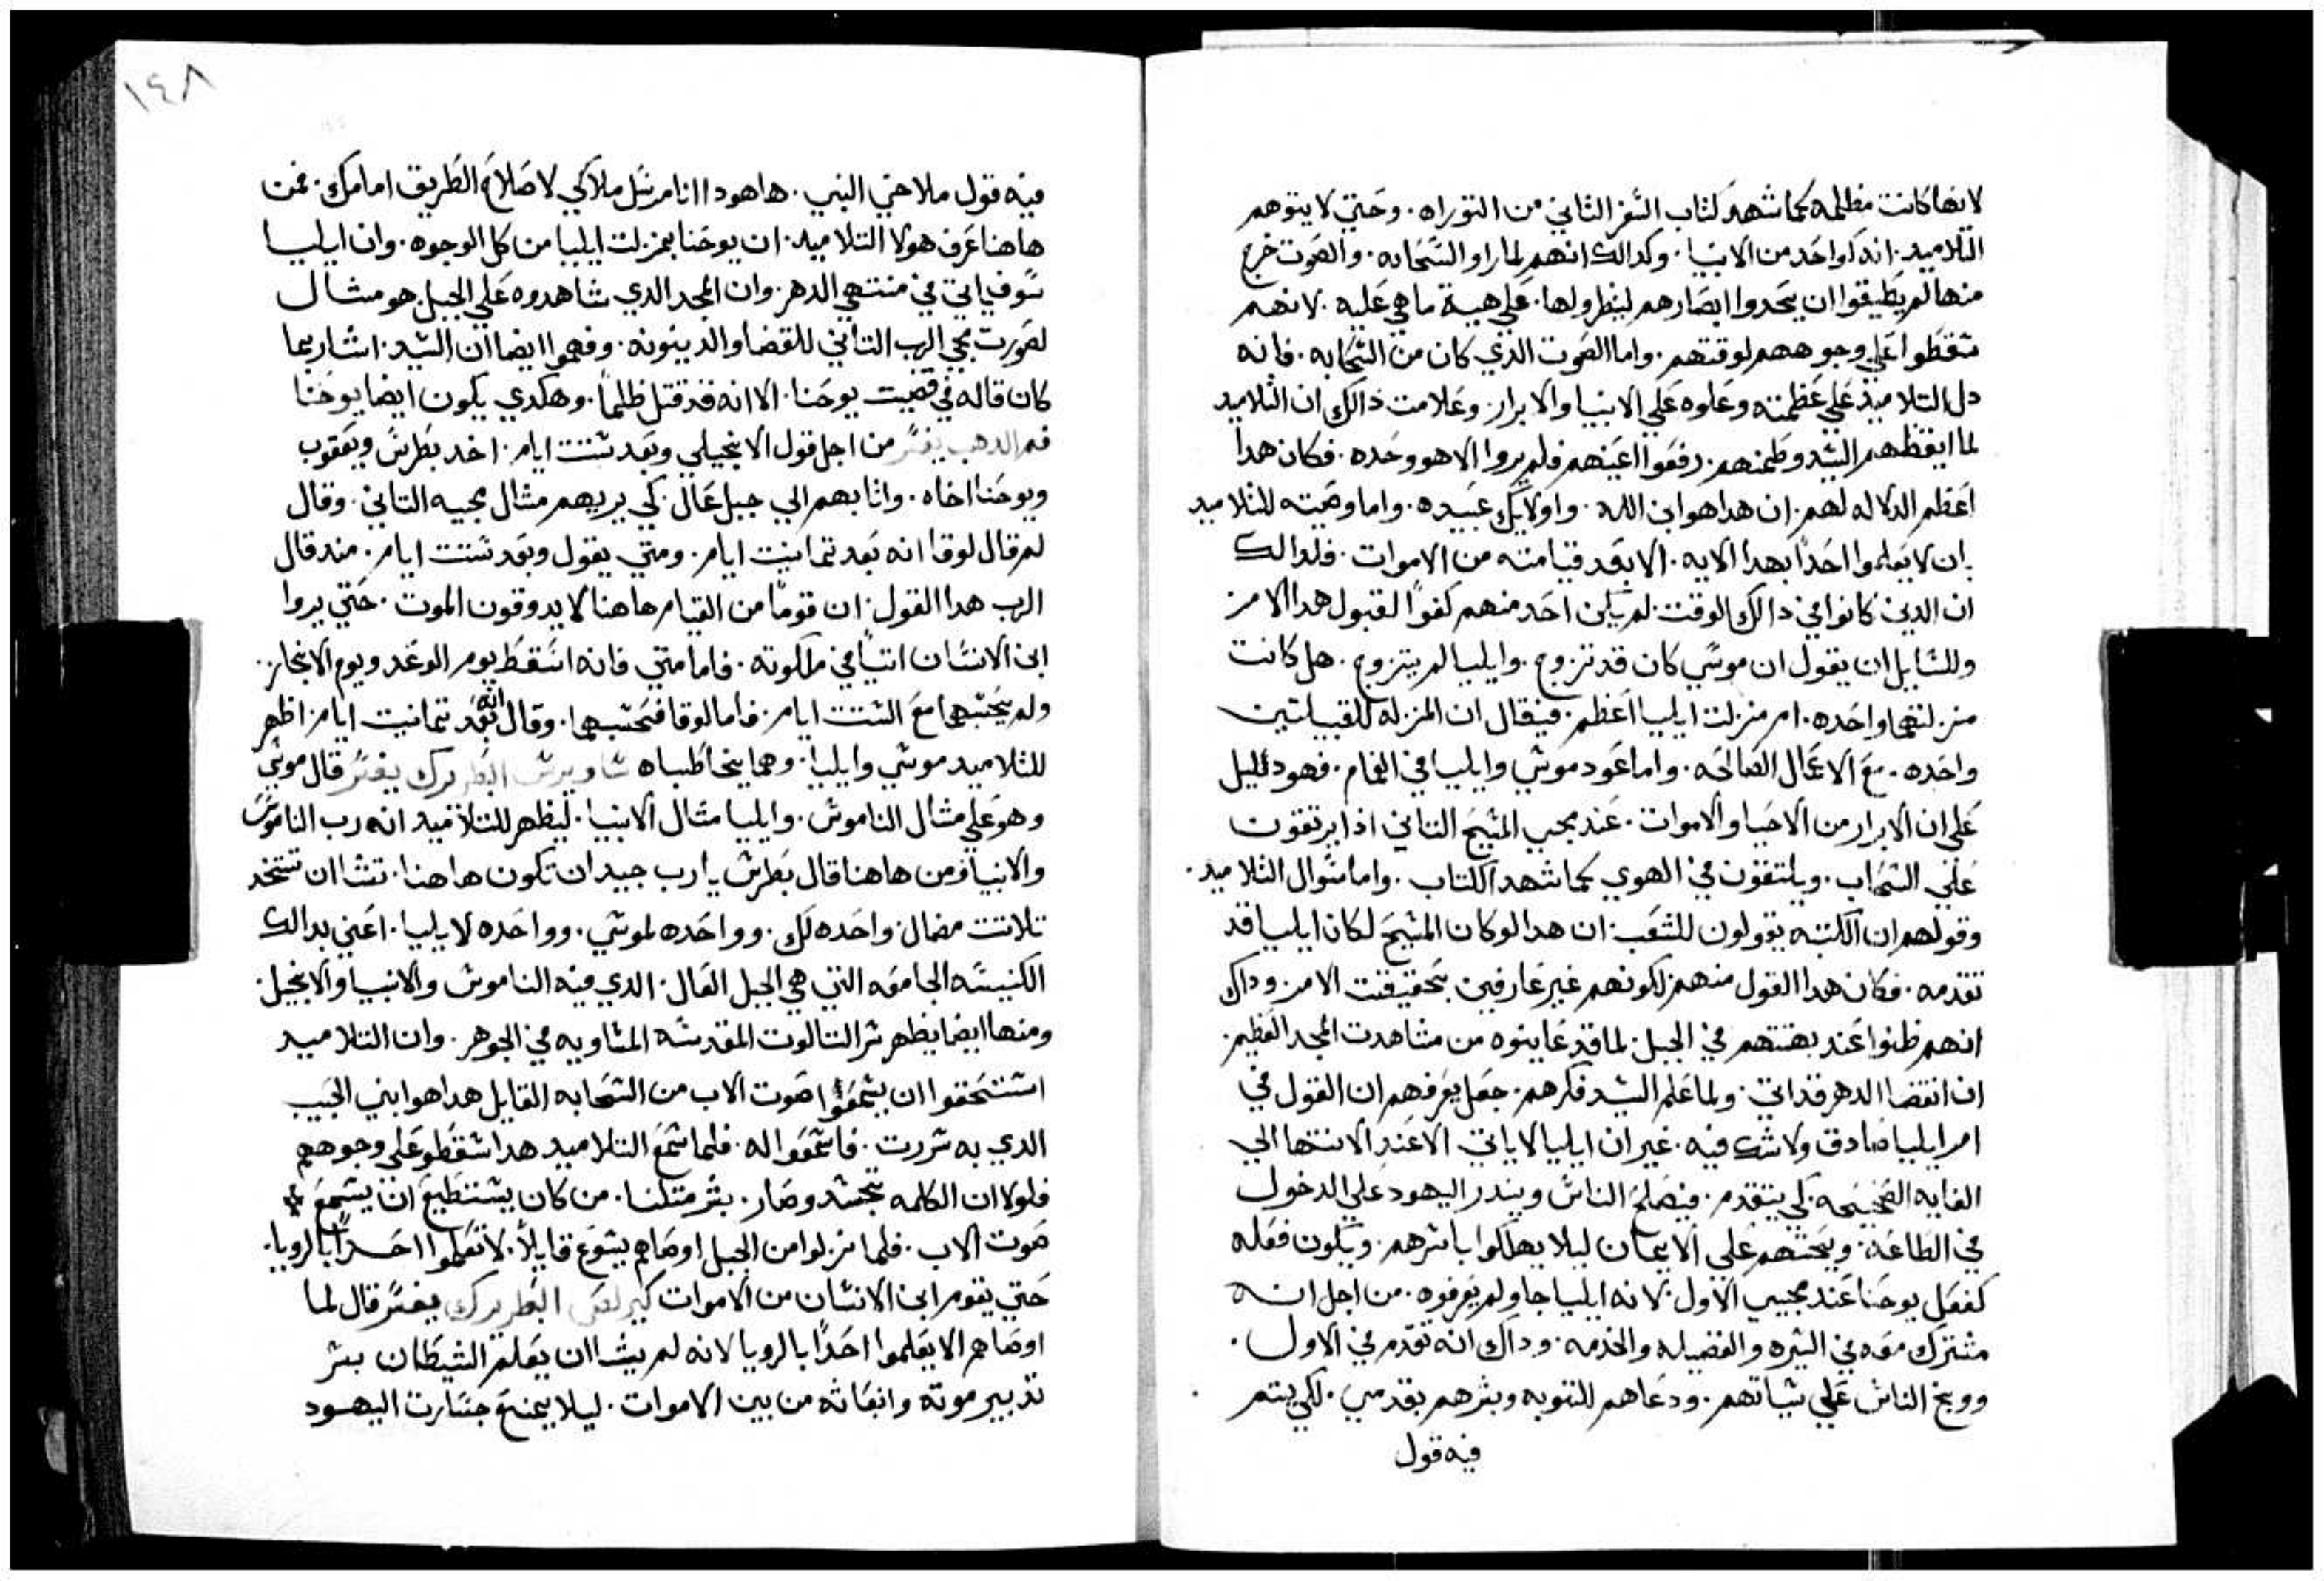 لانها كانت مظلمه كما شهد كتاب السفر الثاني من التوراه. وحتي لا يتوهم
التلاميد. انه كواحد من الانبيا. وكدالك انهم لما راو السحابه. والصوت خرج
منها لم يطيقوا ان يحدوا ابصارهم لينظرو لها. علي هية ما هي عليه. لانهم
سقطوا علي وجوههم لوقتهم. واما الصوت الذي كان من السحابه. فانه
دل التلاميد علي عظمته وعلوه علي الانبيا والابرار. وعلامت ذالك ان التلاميد
لما ايقظهم السيد وطمنهم. رفعوا اعينهم فلم يروا الا هو وحده. فكان هدا
اعظم الدلاله لهم. ان هدا هو ابن الله. واولايك عبيده. واما وصيته للتلاميد
بان لا يعلموا احدًا بهدا الايه. الا بعد قيامته من الاموات. فلدالك
ان الدين كانوا في دالك الوقت. لم يكن احد منهم كفوًا لقبول هدا الامر
وللسايل ان يقول ان موسي كان قد تزوج. وايليا لم يتزوج. هل كانت
منزلتهما واحده. ام منزلت ايليا اعظم. فيقال ان المنزله للقبيلتين
واحده. مع الاعمال الصالحه. واما عود موسي وايليا في الغمام. فهو دليل
علي ان الابرار من الاحيا والاموات. عند مجيي المسيح التاني اذا يرتفعون
علي السحاب. ويلتقون في الهوي كما شهد الكتاب. واما سوال التلاميد.
وقولهم ان الكتبه يقولون للشعب. ان هدا لو كان المسيح لكان ايليا قد
تقدمه. فكان هدا القول منهم لكونهم غير عارفين بتحقيقت الامر. وداك
انهم ظنوا عند بهتتهم في الجبل. لما قد عاينوه من مشاهدت المجد العظيم.
ان انقضا الدهر قد اتي. ولما علم السيد فكرهم. جعل يعرفهم ان القول في
امر ايليا صادق ولا شك فيه. غير ان ايليا لا ياتي. الا عند الانتها الي
الغايه الصحيحه. لكي يتقدم. فيصلح الناس وينذر اليهود علي الدخول
في الطاعه. ويحتهم علي الايمان ليلا يهلكوا باسرهم. ويكون فعله
كفعل يوحنا عند مجيي الاول. لانه ايليا جا ولم يعرفوه. من اجل انه
مشترك معه في السيره والفضيله والخدمه. وداك انه تقدم في الاول.
ووبخ الناس علي سياتهم. ودعاهم للتوبه وبشرهم بقدومي. لكي يتم
فيه قول
١٤٨
فيه قول ملاخي النبي. هاهودا انا مرسل ملاكي لاصلاح الطريق امامك. فمن
هاهنا عرف هولا التلاميد. ان يوحنا بمنزلت ايليا من كل الوجوه. وان ايليا
سوف ياتي في منتهي الدهر. وان المجد الدي شاهدوه علي الجبل. هو مثال
لصورت مجي الرب التاني للقضا والدينونه. وفهموا ايضا ان السيد. اشار بما
كان قاله في قضيت يوحنا. الا انه قد قتل ظلمًا. وهكدي يكون ايضا يوحنا
فم الدهب يفسر من اجل قول الانجيلي وبعد ستت ايام. اخد بطرس ويعقوب
ويوحنا اخاه. واتا بهم الي جبل عال. كي يريهم مثال مجيه التاني. وقال
لم قال لوقا انه بعد تمانيت ايام. ومتي يقول وبعد ستت ايام. مند قال
الرب هدا القول. ان قومًا من القيام هاهنا لا يدوقون الموت. حتي يروا
ابن الانسان اتيًا في ملكوته. فاما متي فانه اسقط يوم الوعد ويوم الانجاز.
ولم يحتسبهما مع الستت ايام. فاما لوقا فحسبهما. وقال انه بعد تمانيت ايام. اظهر
للتلاميد موسي وايليا. وهما يخاطباه ساويرس البطريرك يفسر قال موسي
وهو علي مثال الناموس. وايليا مثال الانبيا. ليظهر للتلاميد انه رب الناموس
والانبيا. فمن هاهنا قال بطرس يا رب جيد ان نكون هاهنا. تشا ان نتخد
تلاتت مضال. واحده لك. وواحده لموسي. وواحده لايليا. اعني بدالك
الكنيسه الجامعه التي هي الجبل العال. الدي فيه الناموس والانبيا والانجيل.
ومنها ايضا يظهر سر التالوت المقدسه المتساويه في الجوهر. وان التلاميد
استحقوا ان يسمعوا صوت الاب من السحابه القايل هدا هو ابني الحبيب
الدي به سررت. فاسمعوا له. فلما سمع التلاميد هدا سقطو علي وجوههم
فلولا ان الكلمه تجسد وصار. بشر متلنا. من كان يستطيع ان يسمع
صوت الاب. فلما نزلوا من الجبل اوصاهم يسوع قايلًا. لا تعلموا احدًا بالرويا.
حتي يقوم ابن الانسان من الاموات كيرلص البطريرك يفسر قال لما
اوصاهم الا يعلموا احدًا بالرويا لانه لم يشا ان يعلم الشيطان بسر
تدبير موته وانبعاثه من بين الاموات. ليلا يمنع جسارت اليهود